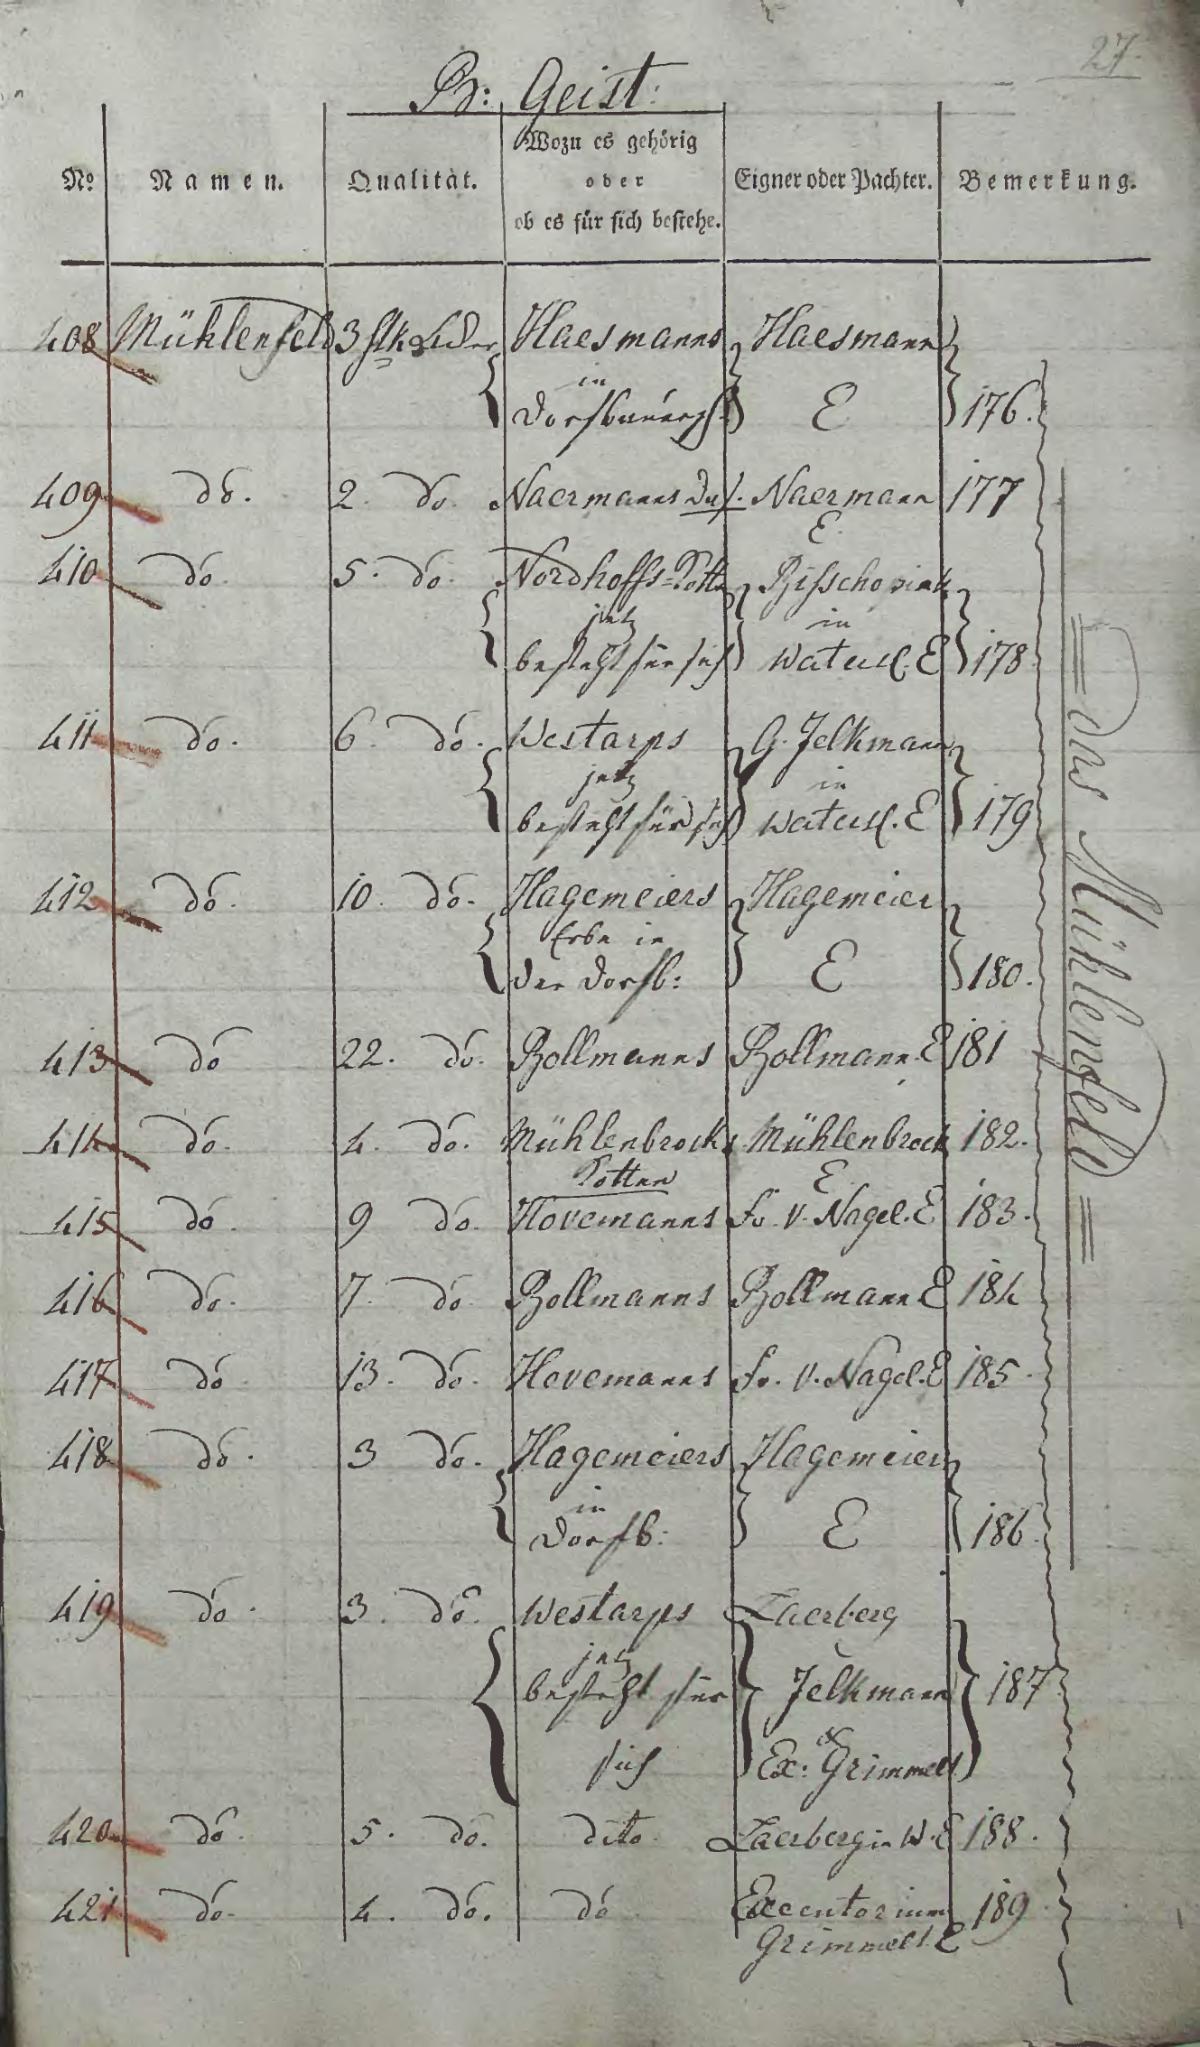 27.
Br: Geist:
No Namen. Qualität. Wozu es gehörig oder ob es für sich bestehe. Eigner oder Pachter. Bemerkung.
408 Mühlenfeld 3 Haesmanns Haesmann
in
E 176.
409 do. 2. do. Naermanns Naermann 177
E.
410 do. 5. do. Nordhoffs-Kotten Bisschopink
jetz in
besteht für sich E 178
411 do. 6. do. Westarps G. Jelkmann
jetz in
besteht für sich E 179
412 do. 10. do. Hagemeiers Hagemeier
Erbe in
der Dorfb: E 180.
413 do 22. do. Bollmanns Bollmann. E 181
414 do. 4. do. Mühlenbrocks Mühlenbrock 182.
Kotten E
415 do. 9 do. Hovemanns Fr. v. Nagel. E 183.
416 do. 7. do Bollmanns Bollmann E 184
417 do 13. do. Hovemanns Fr. v. Nagel. E 185.
418 do. 3 do. Hagemeiers Hagemeier
in
Dorfb: E 186.
419 do. 3. do. Westarps Laerberg
jetz
besteht für Jelkmann 187
&
sich Ex: Grimmelt
420 do. 5. do. dito. Laerberg in W. E 188.
421 do. 4. do. do 189
Grimmelt. E
= Das Mühlenfeld =